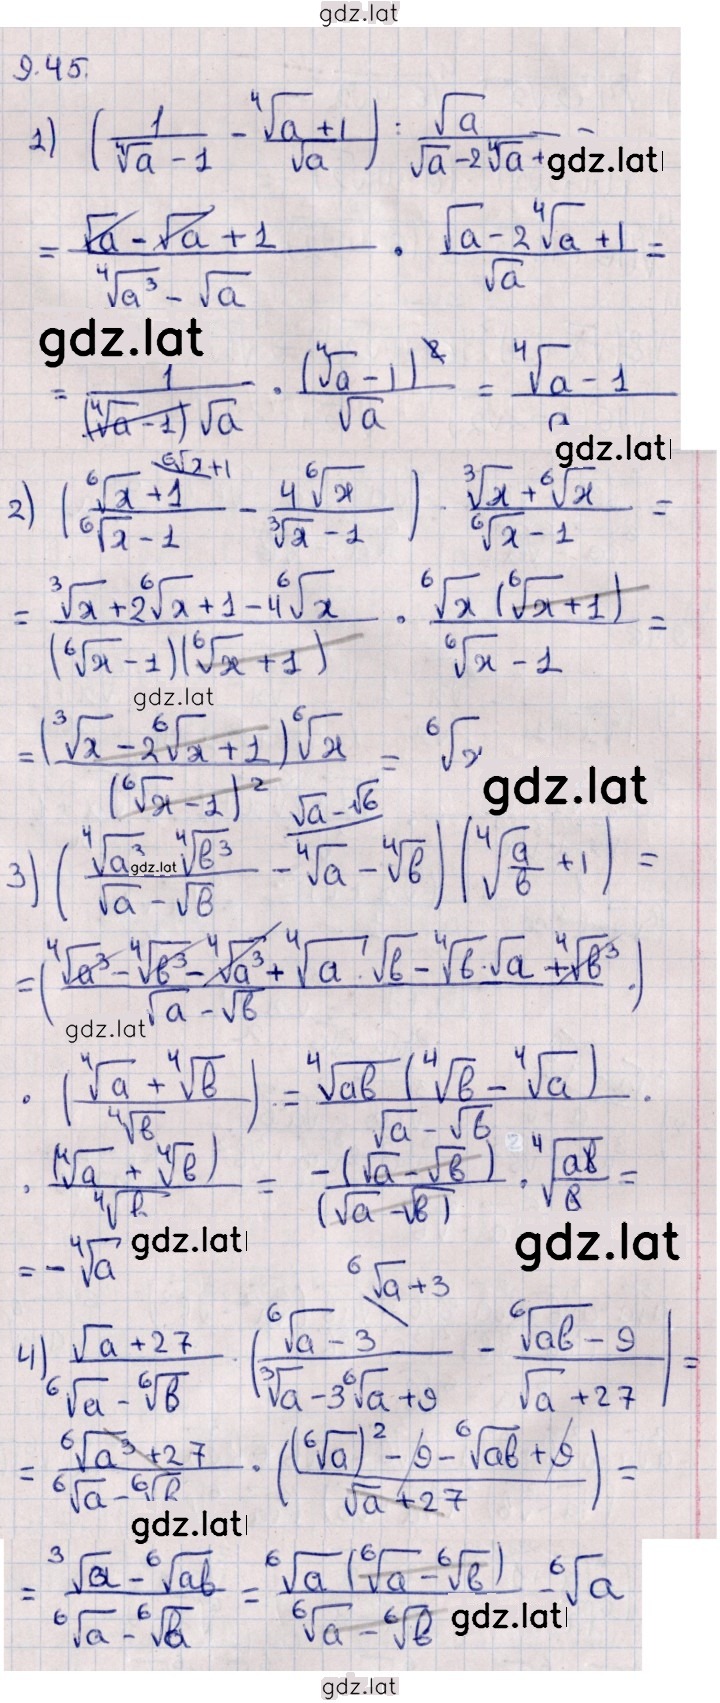 gdz.lat
9.45.
1) (1/(⁴√a - 1) - (⁴√a + 1)/√a) : √a/(√a - 2⁴√a + gdz.lat
= (√a - √a + 1)/(⁴√a³ - √a) · (√a - 2⁴√a + 1)/√a =
gdz.lat
= 1/((⁴√a - 1)√a) · (⁴√a - 1)²/√a = (⁴√a - 1)/a
gdz.lat
⁶√x+1
2) ((⁶√x + 1)/(⁶√x - 1) - 4⁶√x/(³√x - 1)) · (³√x + ⁶√x)/(⁶√x - 1) =
= (³√x + 2⁶√x + 1 - 4⁶√x)/((⁶√x - 1)(⁶√x + 1)) · ⁶√x(⁶√x + 1)/(⁶√x - 1) =
gdz.lat
= (³√x - 2⁶√x + 1)⁶√x/(⁶√x - 1)² = ⁶√x
gdz.lat
√a - √б
3) ((⁴√a³ gdz.lat ⁴√в³)/(√a - √в) - ⁴√a - ⁴√в)(⁴√(a/в) + 1) =
= ((⁴√a³ - ⁴√в³ - ⁴√a³ + ⁴√a · √в - ⁴√в · √a + ⁴√в³)/(√a - √в) ·)
gdz.lat
· ((⁴√a + ⁴√в)/⁴√в) = ⁴√aв(⁴√в - ⁴√a)/(√a - √в) ·
· (⁴√a + ⁴√в)/⁴√в = -(√a - √в)/(√a - √в) · ⁴√(aв/в) =
gdz.lat
gdz.lat
= -⁴√a
⁶√a + 3
4) (√a + 27)/(⁶√a - ⁶√в) · ((⁶√a - 3)/(³√a - 3⁶√a + 9) - (⁶√aв - 9)/(√a + 27)) =
= (⁶√a³ + 27)/(⁶√a - ⁶√в) · (((⁶√a)² - 9 - ⁶√aв + 9)/(√a + 27)) =
gdz.lat
= (³√a - ⁶√aв)/(⁶√a - ⁶√в) = ⁶√a(⁶√a - ⁶√в)/(⁶√a - ⁶√в) = ⁶√a
gdz.lat
gdz.lat